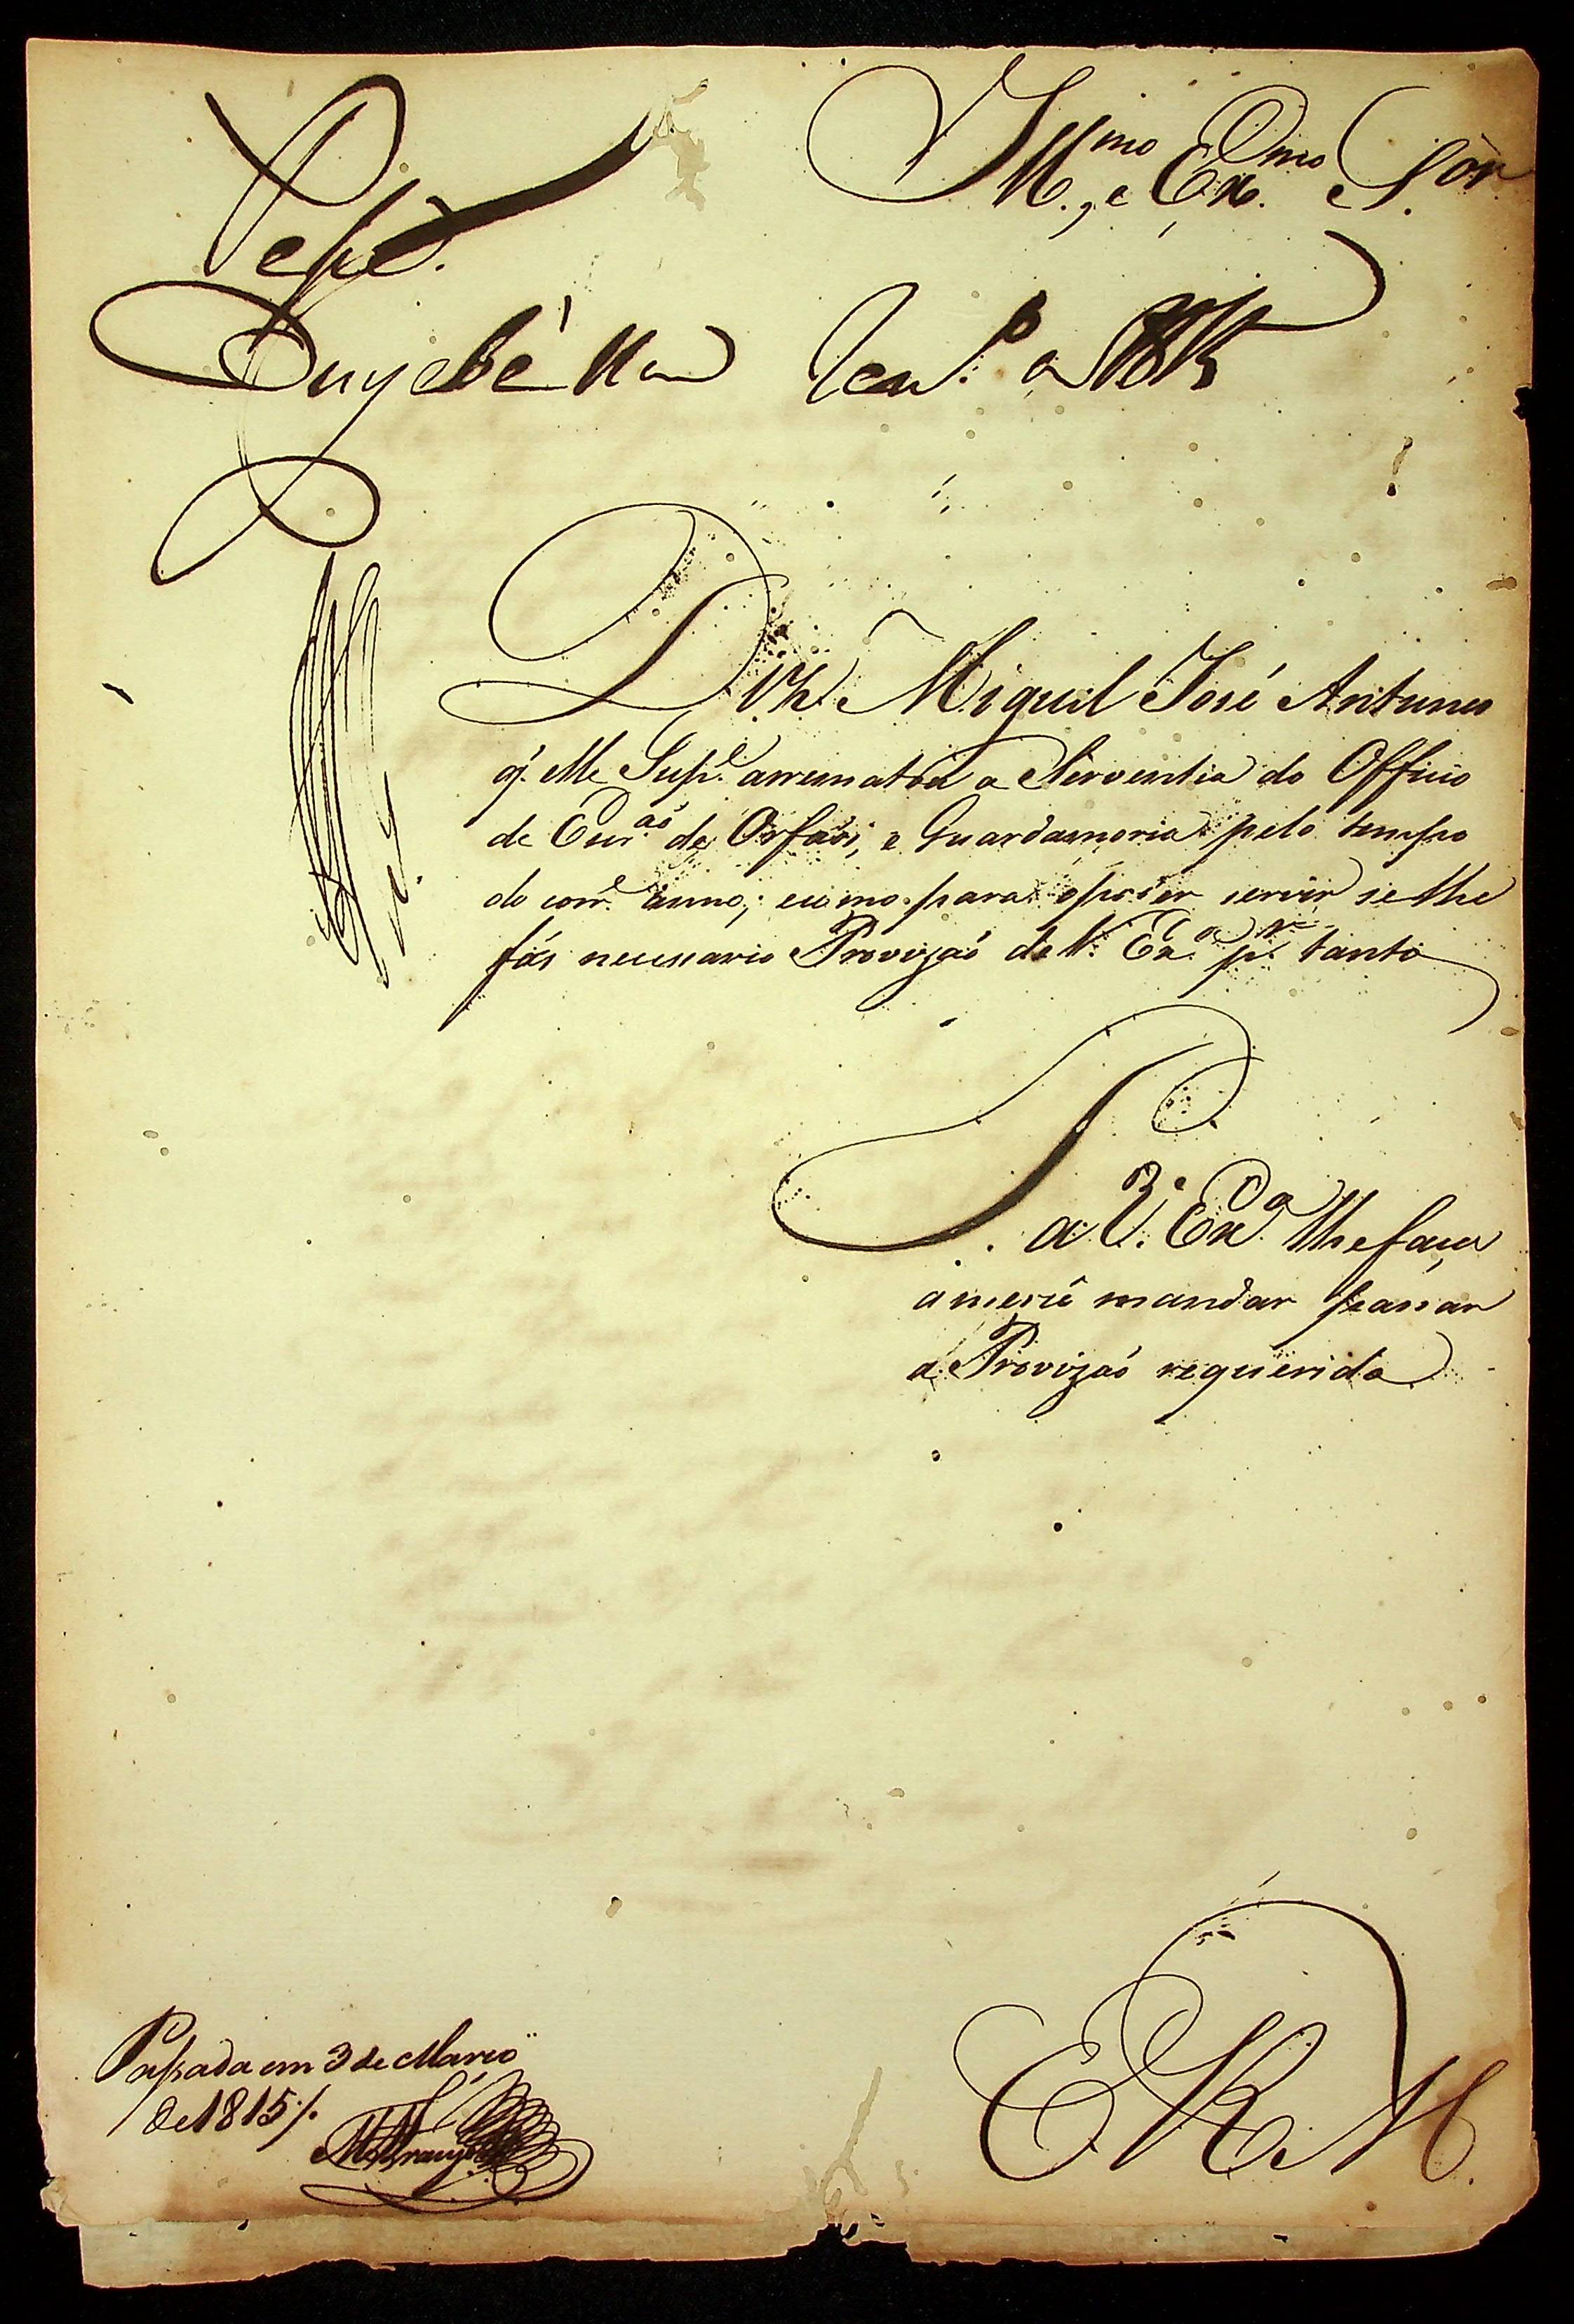 Ill.mo, e Ex.mo S.or
Passe.
Cuyabá 1.º de Março de 1815
Diz Miguel José Antunes
q̃ elle Sup.e arrematou a Serventia do Officio
de Escr.ão de Orfãos, e Guardamoria pelo tempo
do corr.e anno; e como para o poder servir se lhe
fás necessario Provizaõ de V. Ex.a p.r tanto
P. a V. Ex.a lhe faça
a mercê mandar passar
a Provizaõ requerida
E R M.
Passada em 3 de Março
de 1815 /.